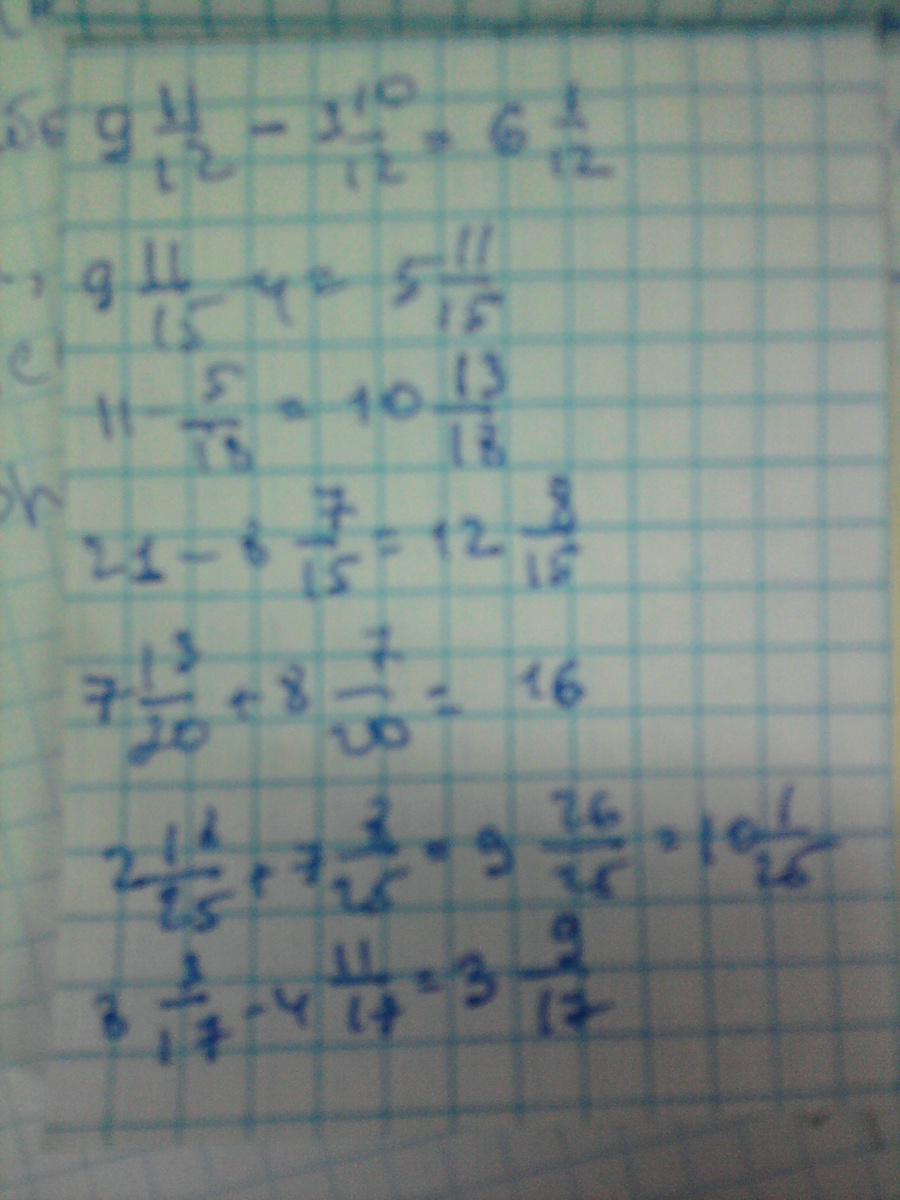 9 11/12 - 3 10/12 = 6 1/12
9 11/15 - 4 = 5 11/15
11 - 5/18 = 10 13/18
21 - 8 7/15 = 12 8/15
7 13/20 + 8 7/20 = 16
2 /25 + 7 /25 = 9 26/25 = 10 1/25
8 3/17 - 4 11/17 = 3 9/17